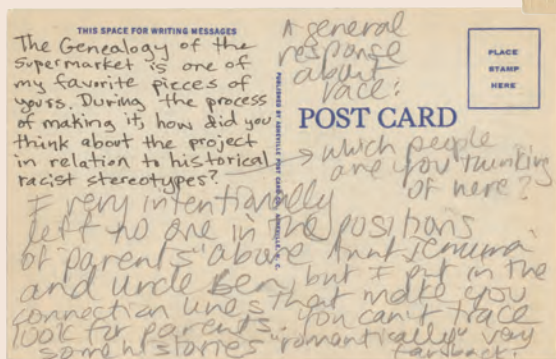 THIS SPACE FOR WRITING MESSAGES
The Genealogy of the
Supermarket is one of
my favorite pieces of
yours. During the process
of making it, how did you
think about the project
in relation to historical
racist stereotypes?
A general
response
about
race:
PLACE
STAMP
HERE
POST CARD
which people
are you thinking
of here?
I very intentionally
left no one in the positions
of "parents" above Aunt Jemima
and Uncle Ben, but I put in the
connection lines that make you
look for parents. You can't trace
some histories "romantically" very